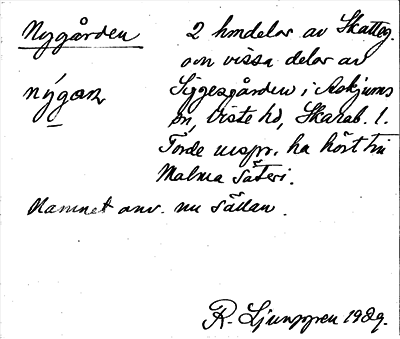 Nygården 2 hmdelar av Skatteg.
och vissa delar av
nýgan Siggesgården i Askjums
sn, Viste hd, Skarab. l.
Torde urspr. ha hört till
Malma Säteri.
Namnet anv. nu sällan.
R. Ljunggren 1929.